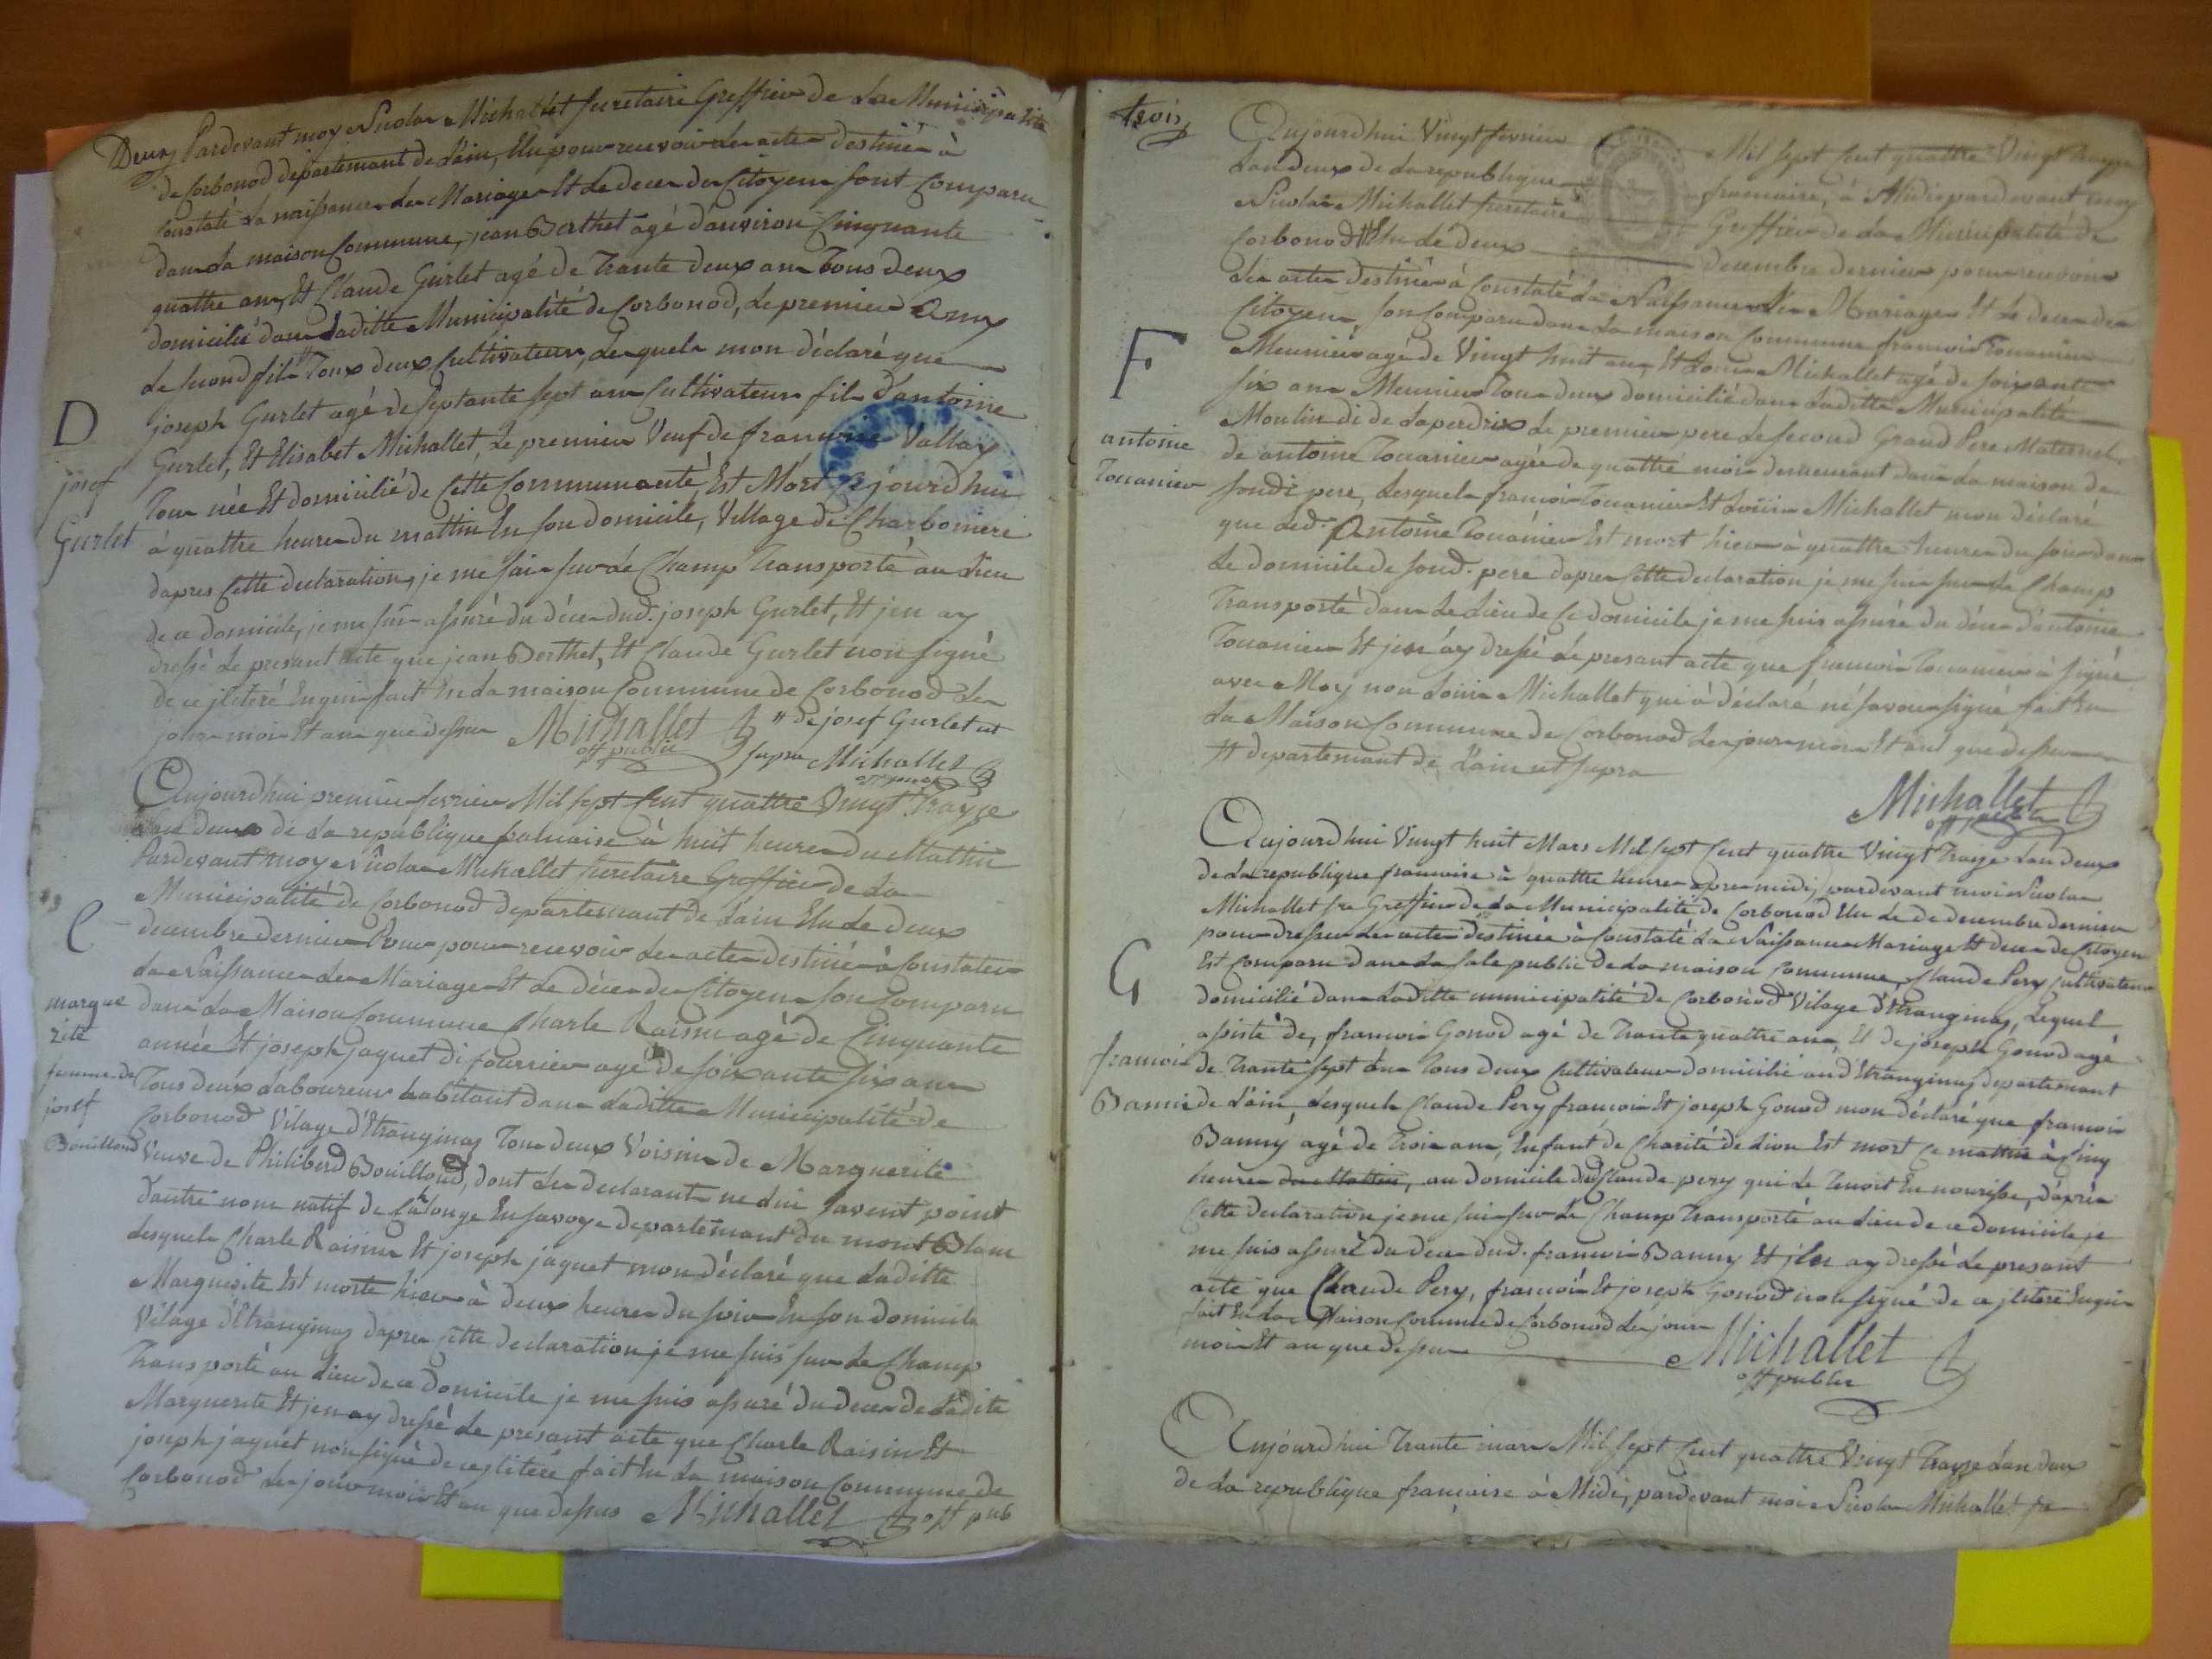 Deux Pardevant moy Nicolas Michallet secretaire Greffier de La Municipalité
de Corbonod departemant de Lain, Elu pour recevoir les actes destiné à
constaté La naissance les Mariages Et Le deces des Citoyens sont comparu
dans La maison Commune, jean Berthet agé danviron Cinquante
quattre ans, Et Claude Gurlet agé de Trante deux ans Tous deux
domicilié dans Laditte Municipalité de Corbonod, Le premier Amy
Le second fils # Toux deux Cultivateurs, Lesquels mon déclaré que
D
joseph Gurlet agé de septante sept ans Cultivateur fils d'antoine
Gurlet, Et Elisabet Michallet, Le premier Veuf de francoise Vallay
josef
Gurlet
Tous née Et domicilié de Cette Communauté Est Mort Cejourdhui
à quattre heures du mattin En son domicile, Village de Charboniere
dapres Cette declaration, je me suis sur Lé Champ Transporté au Lieu
de ce domicile, je me suis assuré du déces dud. joseph Gurlet, Et jen ay
dressé Le presant acte que jean Berthet, Et Claude Gurlet non signé
de ce jliteré Enquis fait En La maison Commune de Corbonod Les
jour mois Et an que dessus Michallet off public
# de josef Gurlet ut
supra Michallet
Aujourdhui premier fevrier Mil sept Cent quattre Vingt Trayze
deux de La republique à huit heures du Mattin
Pardevant moy Nicolas Michallet secretaire Greffier de La
Municipalité de Corbonod departemant de Lain Elu Le deux
C
decembre dernier pour recevoir Les actes destiné à Constater
La Naissance Les Mariages Et Le déces des Citoyens son Comparu
margue
rite
dans La Maison Commune Charle Raisin agé de Cinquante
année Et joseph jaquet di fourrier agé de soixante six ans
femme de
josef
Bouilloud
Tous deux Laboureur habitant dans Laditte Municipalité de
Corbonod Vilage d'Etranginas Tous deux Voisins de Marguerite
Veuve de Philiberd Bouilloud, dont Les declarants ne Lui savent point
dautre nom natif de En savoye departemant du mont Blanc
Lesquels Charle Raisin Et joseph jaquet mon déclaré que Laditte
Marguerite Est morte hier à deux heures du soir En son domicile
Vilage d'Etranginas dapres Cette declaration je me suis sur Le Champ
Transporté au Lieu de ce domicile je me suis assuré du deces de Ladite
Marguerite Et jen ay dressé Le presant acte que Charle Raisin Et
joseph jaquet non signé de ce jliteré fait En La maison Commune de
Corbonod Les jour mois Et an que dessus Michallet off pub
trois
Aujourdhui Vingt fevrier Mil sept Cent quattre Vingt Trayze
Lan deux de La republique francaise, à Midi pardevant moy
Nicolas Michallet secretaire Greffier de La Municipalité de
Corbonod # Elu Lé deux decembre dernier pour recevoir
Les actes destiné à Constaté La Naissance Les Mariages Et Le deces des
Citoyens, son Comparu dans La maison Commune francois Touanier
F
Meunier agé de Vingt huit ans, Et Louis Michallet agé de soixante
six ans Meunier Tous deux domicilié dans Laditte Municipalité
Moulin di de Laperdrix Le premier pere Le second Grand Pere Maternel
antoine
Touanier
de antoine Touanier agée de quattré mois demeurant dans La maison de
sondi pere, Lesquels francois Touanier Et Louis Michallet mon déclaré
que Led. Antoine Touanier Est mort hier à quattre heures du soir dans
Le domicile de sond. pere dapres Cette declaration je me suis sur Le Champ
Transporté dans Le Lieu de Ce domicile je me suis assuré du déces d'antoine
Touanier Et jen ay dressé Le presant acte que francois Touanier à signé
avec Moy non Louis Michallet qui à déclaré né savoir signé fait En
La Maison Commune de Corbonod Les jour mois Et ant que dessus
# departemant de L'ain ut supra
Michallet
off public
Aujourdhui Vingt huit Mars Mil sept Cent quattre Vingt Trayze Lan deux
de La republique francaise à quattre heures apres midi, pardevant moi Nicolas
Michallet sre Greffier de La Municipalité de Corbonod Elu Le de decembre dernier
pour dresser Les actes destinée à Constaté La Naissance Mariage Et deces de Citoyen
Est Comparu dans La sale public de La maison Commune, Claude Pery Cultivateur
G
domicilié dans Laditte municipalité de Corbonod Vilage d'Etranginas, Lequel
assisté de, francois Gonod agé de Trante quattre ans, Et de joseph Gonod agé
francois
Bannis
de Trante sept ans Tous deux Cultivateur domicilié aud Etranginas departemant
de L'ain, Lesquels Claude Pery francois Et joseph Gonod mon déclaré que francois
Banny agé de Trois ans, Enfant de Charité de Lion Est mort Ce mattin à Cinq
heures du Mattin, au domicile du Claude pery qui Le Tenoit En nourisse, dáprés
Cette declaration je me suis sur Le Champ Transporté au Lieu de ce domicile je
me suis assuré du deces dud. francois Banny Et jen ay dressé Le presant
acte que Claude Pery, francois Et joseph Gonod non signé de ce jliteré Enquis
fait En La Maison Commune de Corbonod Les jour
moi Et an que dessus Michallet
off public
Aujourdhui Trante mars Mil sept Cent quattre Vingt Trayze Lan deux
de La republique française à Midi, pardevant moi Nicolas Michallet sre